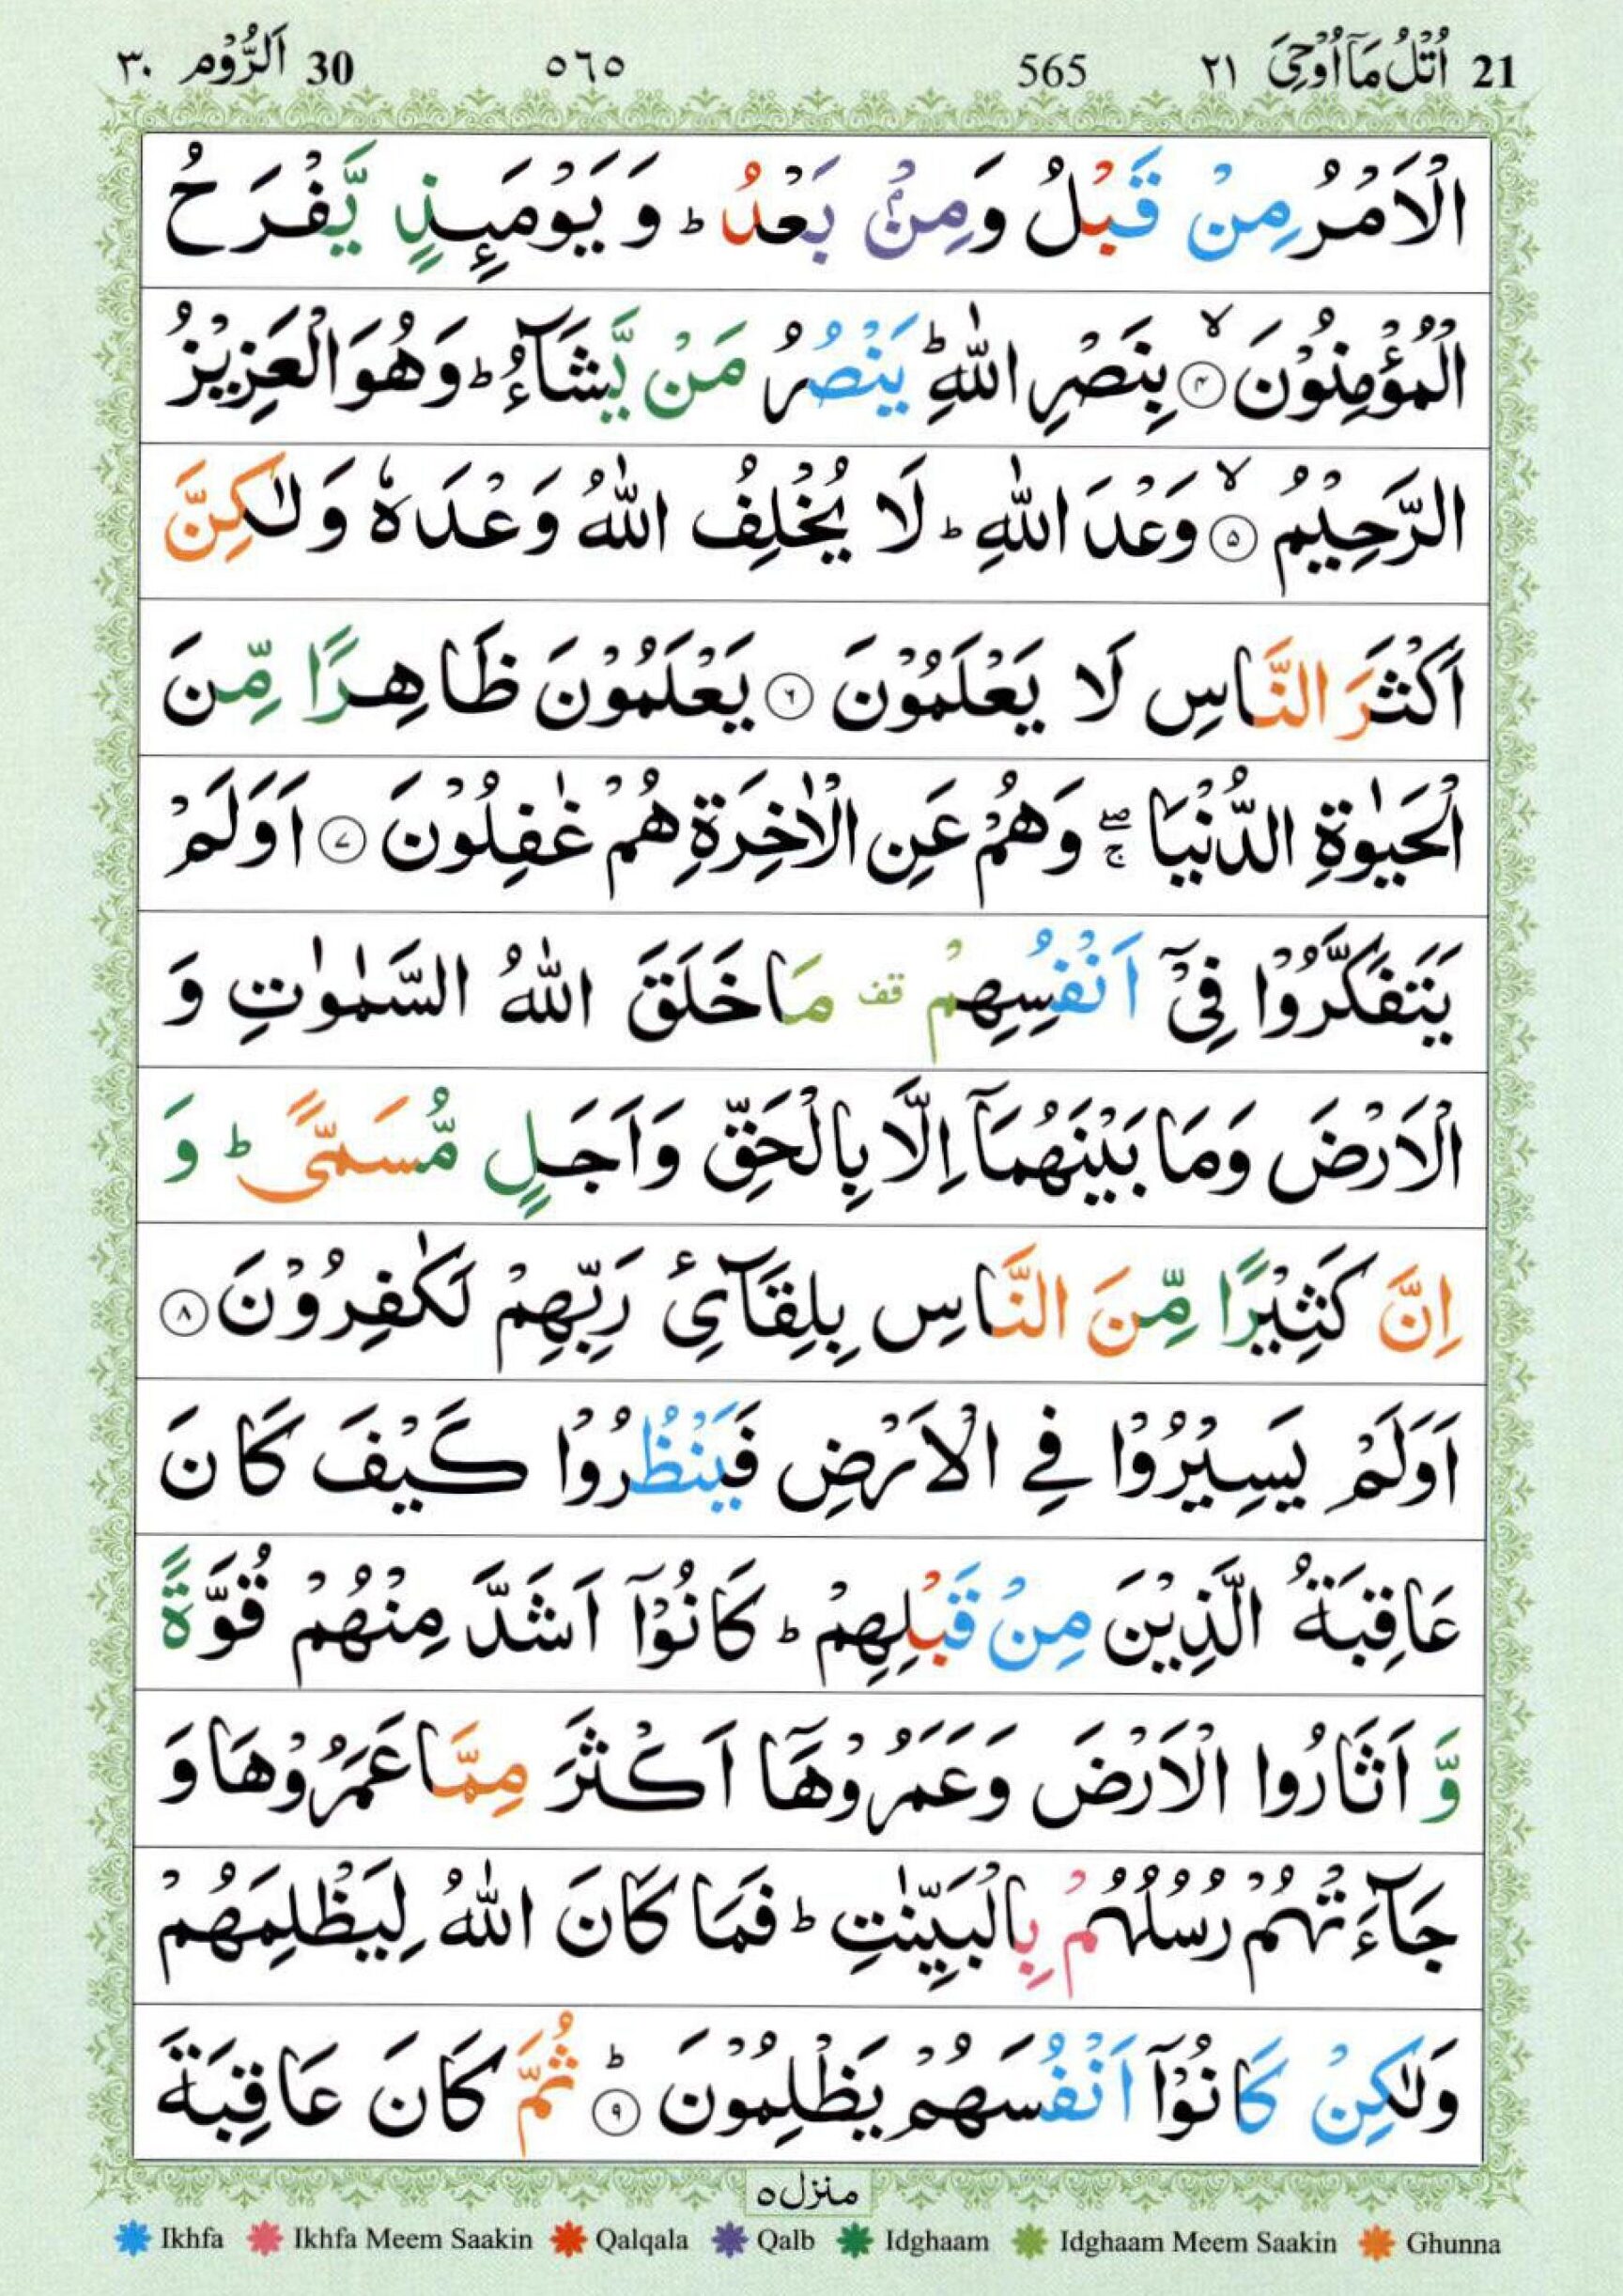 21 اُتْلُ مَآ اُوْحِیَ ٢١ 565 ٥٦٥ 30 اَلرُّوْم ٣٠
الْاَمْرُ مِنْ قَبْلُ وَمِنْۢ بَعْدُ ؕ وَ يَوْمَىِٕذٍ يَّفْرَحُ
الْمُؤْمِنُوْنَ ۙ﴿۴﴾ بِنَصْرِ اللّٰهِ ؕ يَنْصُرُ مَنْ يَّشَآءُ ؕ وَهُوَ الْعَزِيْزُ
الرَّحِيْمُ ۙ﴿۵﴾ وَعْدَ اللّٰهِ ؕ لَا يُخْلِفُ اللّٰهُ وَعْدَهٗ وَلٰكِنَّ
اَكْثَرَ النَّاسِ لَا يَعْلَمُوْنَ ﴿۶﴾ يَعْلَمُوْنَ ظَاهِرًا مِّنَ
الْحَيٰوةِ الدُّنْيَا ۖۚ وَهُمْ عَنِ الْاٰخِرَةِ هُمْ غٰفِلُوْنَ ﴿۷﴾ اَوَلَمْ
يَتَفَكَّرُوْا فِىْٓ اَنْفُسِهِمْ قف مَا خَلَقَ اللّٰهُ السَّمٰوٰتِ وَ
الْاَرْضَ وَمَا بَيْنَهُمَآ اِلَّا بِالْحَقِّ وَاَجَلٍ مُّسَمًّى ؕ وَ
اِنَّ كَثِيْرًا مِّنَ النَّاسِ بِلِقَآئِ رَبِّهِمْ لَكٰفِرُوْنَ ﴿۸﴾
اَوَلَمْ يَسِيْرُوْا فِى الْاَرْضِ فَيَنْظُرُوْا كَيْفَ كَانَ
عَاقِبَةُ الَّذِيْنَ مِنْ قَبْلِهِمْ ؕ كَانُوْٓا اَشَدَّ مِنْهُمْ قُوَّةً
وَّ اَثَارُوا الْاَرْضَ وَعَمَرُوْهَآ اَكْثَرَ مِمَّا عَمَرُوْهَا وَ
جَآءَتْهُمْ رُسُلُهُمْ بِالْبَيِّنٰتِ ؕ فَمَا كَانَ اللّٰهُ لِيَظْلِمَهُمْ
وَلٰكِنْ كَانُوْٓا اَنْفُسَهُمْ يَظْلِمُوْنَ ؕ﴿۹﴾ ثُمَّ كَانَ عَاقِبَةَ
منزل ٥
Ikhfa Ikhfa Meem Saakin Qalqala Qalb Idghaam Idghaam Meem Saakin Ghunna